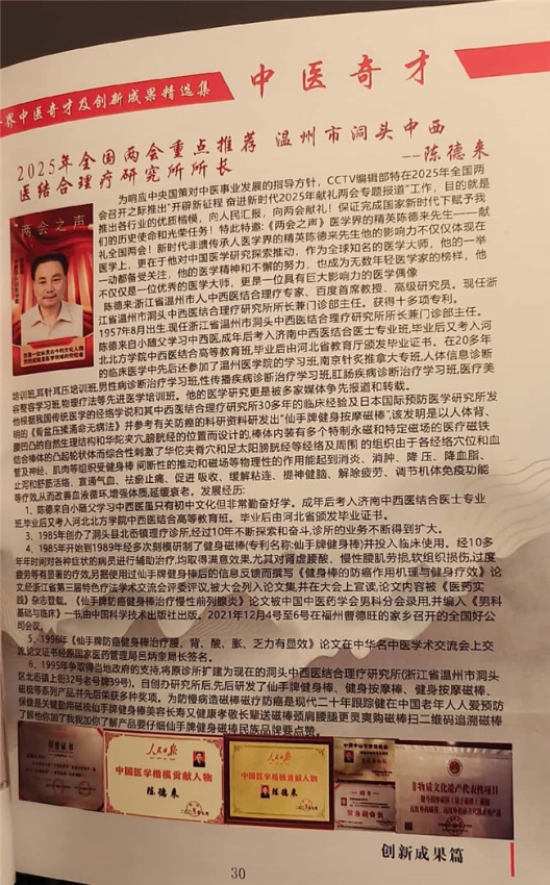 界中医奇才及创新成果精选集
中医奇才
2025年全国两会重点推荐 温州市洞头中西
医结合理疗研究所所长
--陈德来
为响应中央国策对中医事业发展的指导方针，CCTV编辑部特在2025年全国两
会召开之际推出“开辟新征程 奋进新时代2025年献礼两会专题报道”工作，目的就是
推出各行业的优质楷模，向人民汇报，向两会献礼！保证完成国家新时代下赋予我
们的历史使命和光荣任务！特此特邀:《两会之声》医学界的精英陈德来先生——献
礼全国两会！新时代非遗传承人医学界的精英陈德来先生他的影响力不仅仅体现在
医学上，更在于他对中国医学研究探索推动，作为全球知名的医学大师，他的一举
一动都备受关注，他的医学精神和不懈的努力，也成为无数年轻医学家的榜样，他
不仅仅是一位优秀的医学大师，更是一位具有巨大影响力的医学偶像
陈德来:浙江省温州市人中西医结合理疗专家、百度首席教授、高级研究员。现任浙
江省温州市洞头中西医结合理疗研究所所长兼门诊部主任。获得十多项专利。
1957年8月出生.现任浙江省温州市洞头中西医结合理疗研究所所长兼门诊部主任。
陈德来自小随父学习中西医,成年后考入济南中西医结合医士专业班,毕业后又考入河
北北方学院中西医结合高等教育班,毕业后由河北省教育厅颁发毕业证书。在20多年
的临床医学中先后还参加了温州医学院的学习班,南京针灸推拿大专班,人体信息诊断
培训班,耳针耳压培训班,男性病诊断治疗学习班,性传播疾病诊断治疗学习班,肛肠疾病诊断治疗学习班,医疗美
容整容学习班,物理疗法等先进医学培训班。 他的医学研究更是被多家媒体争先报道和转载。
他根据我国传统医学的经络学说和其中西医结合理疗研究所30多年的临床经验及日本国际预防医学研究所发
明的《骨盆压揉涌命元病法》并参考有关防癌的科研资料研发出“仙手牌健身按摩磁棒”,该发明是以人体背、
腰凹凸的自然生理结构和华陀夹穴,膀胱经的位置而设计的,棒体内装有多个特制永磁和特定磁场的医疗磁铁
结合棒体的凸起轮状体而综合性刺激了华佗夹脊穴和足太阳膀胱经等经络及周围 的组织由于各经络穴位和血
管及神经、肌肉等组织受健身棒 间断性的推动和磁场等物理性的作用能起到消炎、消肿、降 压、降血脂、
止泻和舒筋活络、宣通气血、祛瘀止痛、促进 吸收、缓解粘连、提神健脑、解除疲劳、调节机体免疫功能
等疗效,从而改善血液循环,增强体质,延缓衰老。发展经历:
1、陈德来自小随父学习中西医虽只有初中文化但非常勤奋好学。成年后考入济南中西医结合医士专业
班,毕业后又考入河北北方学院中西医结合高等教育班。毕业后由河北省颁发毕业证书。
3、1985年创办了洞头县北岙镇理疗诊所,经过10年不断探索和奋斗,诊所的业务不断得到扩大。
4、1985年开始到1989年经多次刻模研制了健身磁棒(专利名称:仙手牌健身棒)并投入临床使用。经10多
年年时间对各种症状的病员进行辅助治疗,均取得满意效果,尤其对肾虚腰酸、慢性腰肌劳损,软组织损伤,过度
疲劳等有显著的疗效,另据使用过仙手牌健身棒后的信息反馈而撰写《健身棒的防癌作用机理与健身疗效》论
文经浙江省第三届特色疗法学术交流会评委评议,被大会列入论文集,并在大会上宣读,论文内容被《医药实
践》杂志登载。《仙手牌防癌健身棒治疗慢性前列腺炎》论文被中国中医药学会男科分会录用,并编入《男科
基础与临床》一书,由中国科学技术出版社出版。2021年12月4号至6号在福州曹德旺的家乡召开的全国好公
司会议。
5、1996年《仙手牌防癌健身棒治疗腰、背、酸、胀、乏力有显效》论文在中华名中医学术交流会上交
流,论文证书经原国家医药管理局吕炳奎局长签名。
6、1995年争取得当地政府的支持,将原诊所扩建为现在的洞头中西医结合理疗研究所(浙江省温州市洞头
区北岙镇上街32号老号牌39号)。自创办研究所后,先后研发了仙手牌健身棒、健身按摩棒、健身按摩磁棒、
磁棍等系列产品并先后荣获多种奖项。为防慢病造磁棒磁疗防癌是现代二十年跟踪健在中国老年人人爱预防
保健是关键励用磁拢仙手牌健身棒美容长寿又健康孝敬长辈送磁棒颈肩腰腿更灵爽购磁棒扫二维码追溯磁棒
了解他你加了我我加你了解产品要仔细仙手牌健身磁棒民族品牌要点赞。
两会之声
人民日报
中国医学楷模贡献人物
陈德来
人民日报
中国医学楷模贡献人物
陈德来
非物质文化遗产代表性项目
创新成果篇
30